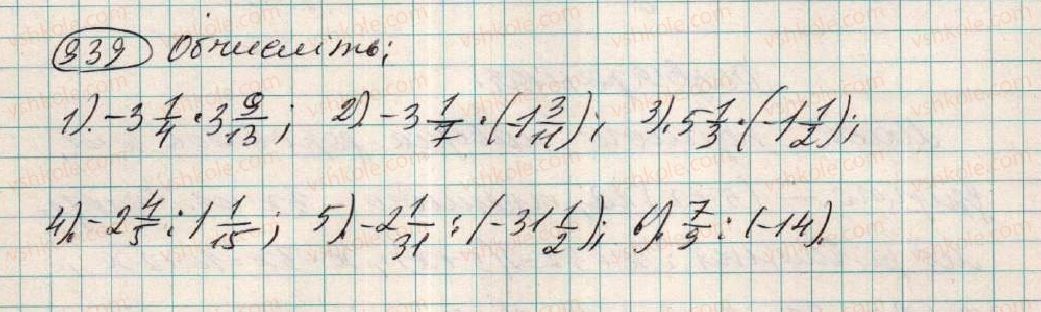 939 Обчисліть;
1). -3 1/4 · 3 9/13; 2). -3 1/7 · (-1 3/11); 3). 5 1/3 · (-1 1/2);
4). -2 4/5 : 1 1/15; 5). -2 1/31 : (-31 1/2); 6). 7/9 : (-14).